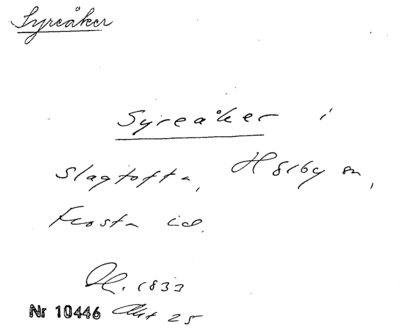 Syreåker
Syreåker i
Slagtofta, Hörby sn,
Frosta hd.
1833
Nr 10446 Akt 25